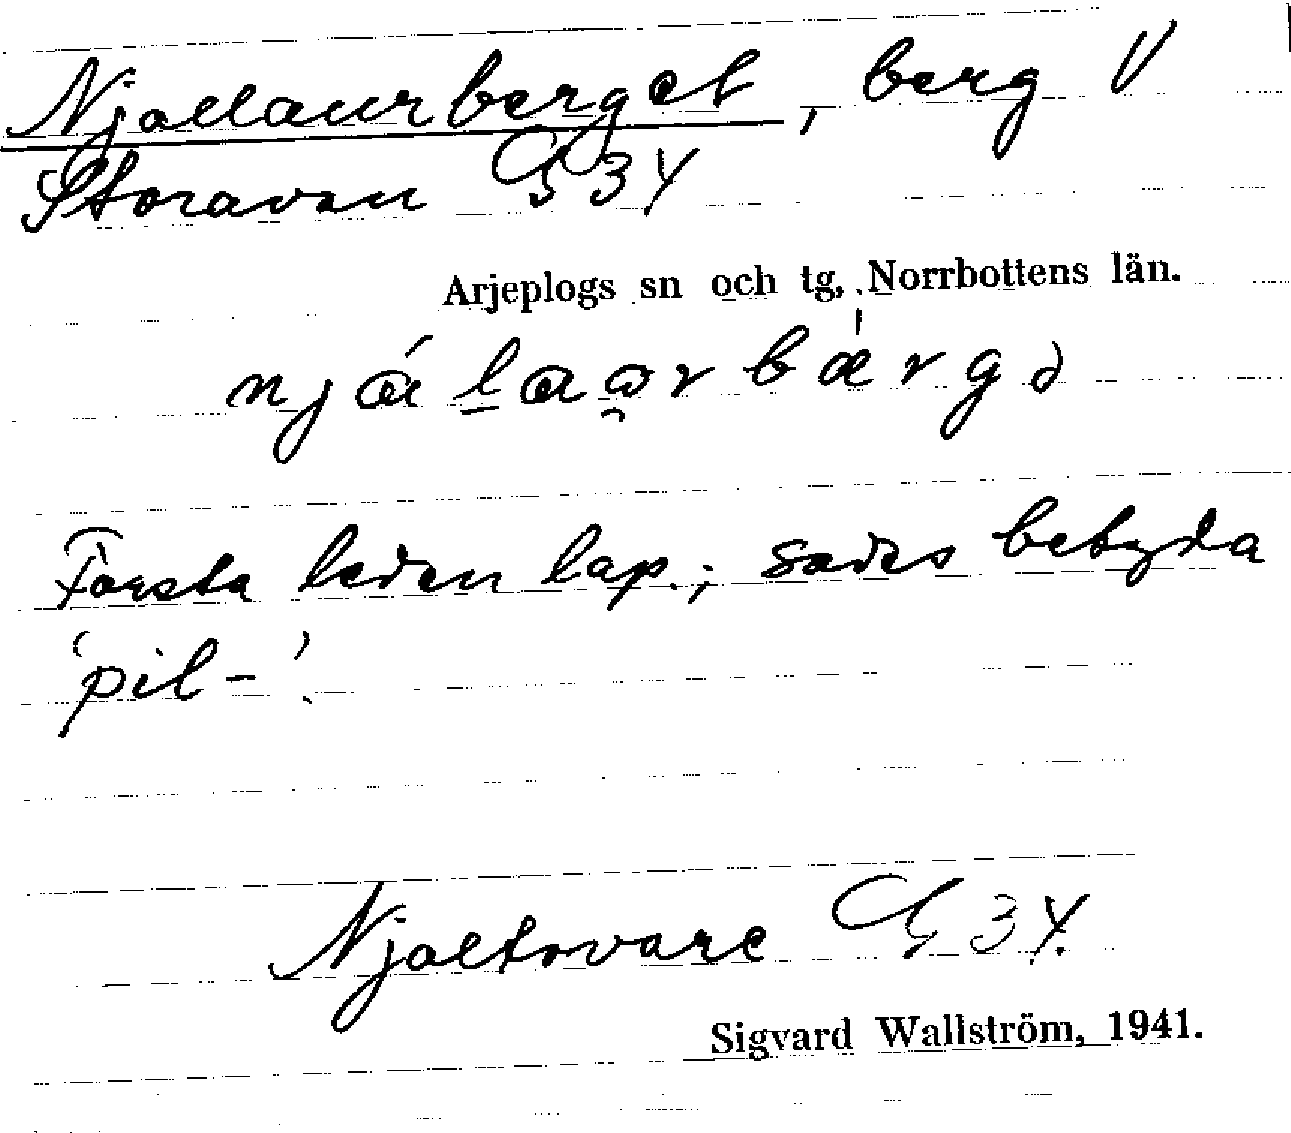 Njallaurberget, berg V
Storavan G 34
Arjeplogs sn och tg, Norrbottens län.
Första leden lap.; sades betyda
'pil-'.
Njaltovare G 34.
Sigvard Wallström, 1941.